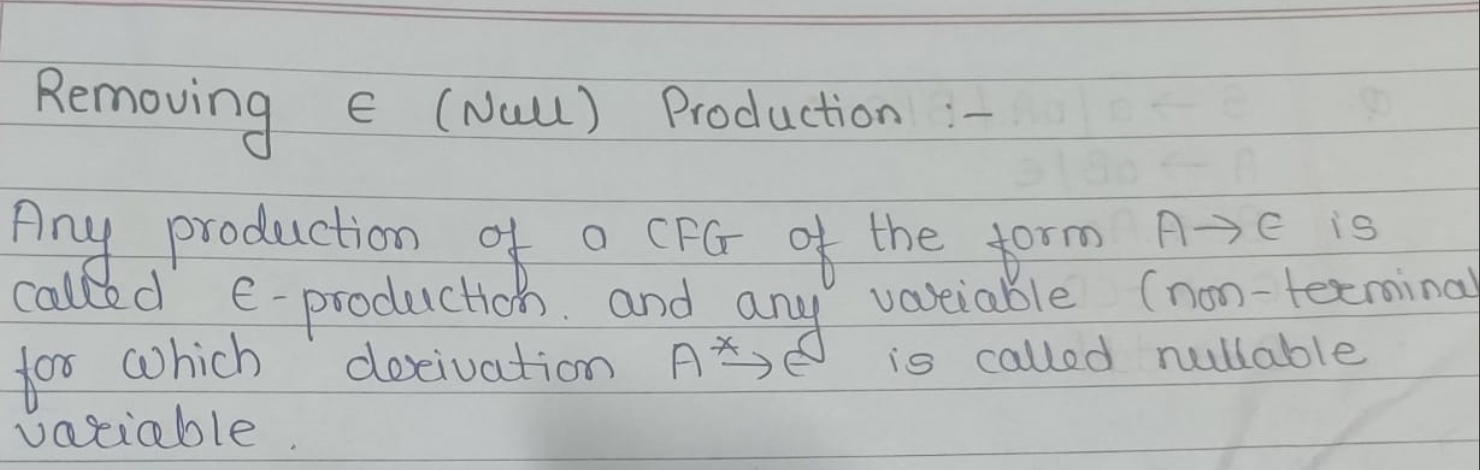 Removing ∈ (Null) Production :-
Any production of a CFG of the form A→∈ is
called ∈-production. and any variable (non-terminal
for which derivation A *→ ∈ is called nullable
variable.